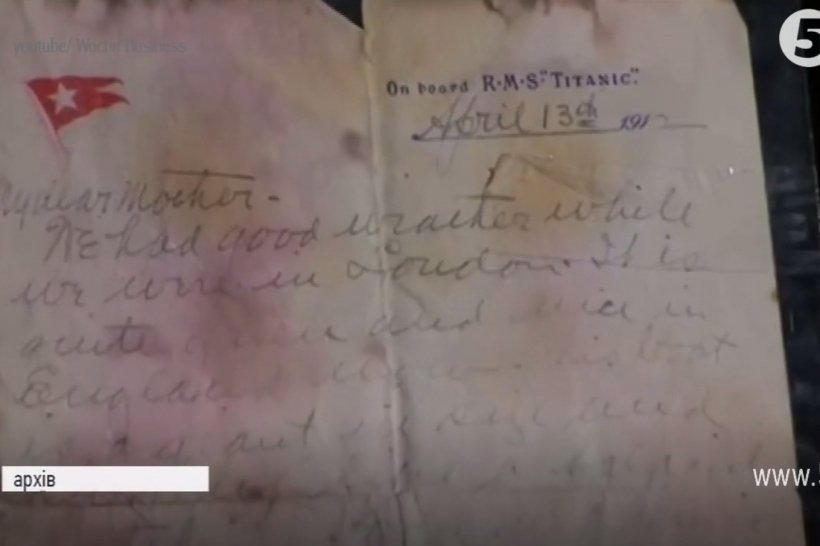 youtube/ World Business
5
On board R·M·S "TITANIC".
April 13th 1912
My dear Mother -
We had good weather while
we were in London. It is
quite green and nice in
England now. This boat
is giant in size and
архів
www.5